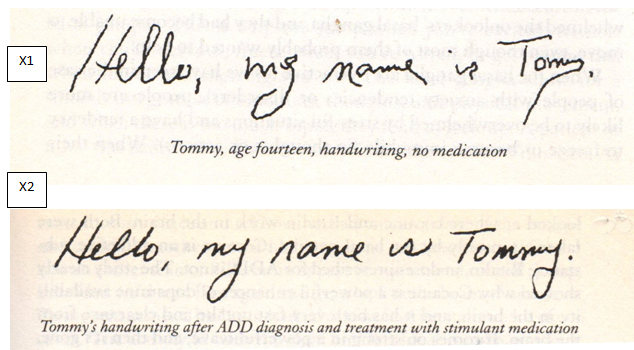 X1
Hello, my name is Tommy
Tommy, age fourteen, handwriting, no medication
X2
Hello, my name is Tommy.
Tommy's handwriting after ADD diagnosis and treatment with stimulant medication